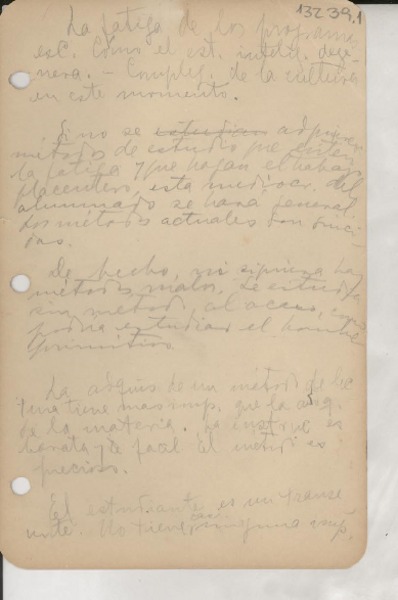 13239.1
La fatiga de los programas
esc. Como el est. intelit. dege-
nera. – Complej. de la cultura
en este momento.
Si no se estudian adquieren
métodos de estudio que eviten
la fatiga y que hagan el trabajo
placentero, esta mediocr. del
alumnado se hará general.
Los métodos actuales son
De hecho, ni siquiera hay
métodos malos, se estudia
sin método, al acaso, como
podría estudiar el hombre
primitivo.
La adquis de un método de
tiene mas imp. que la adq.
de la materia. La instruc es
barata y de facil El metodo es
precioso.
El estudiante es un transe
unte. No tiene casi ninguna imp.